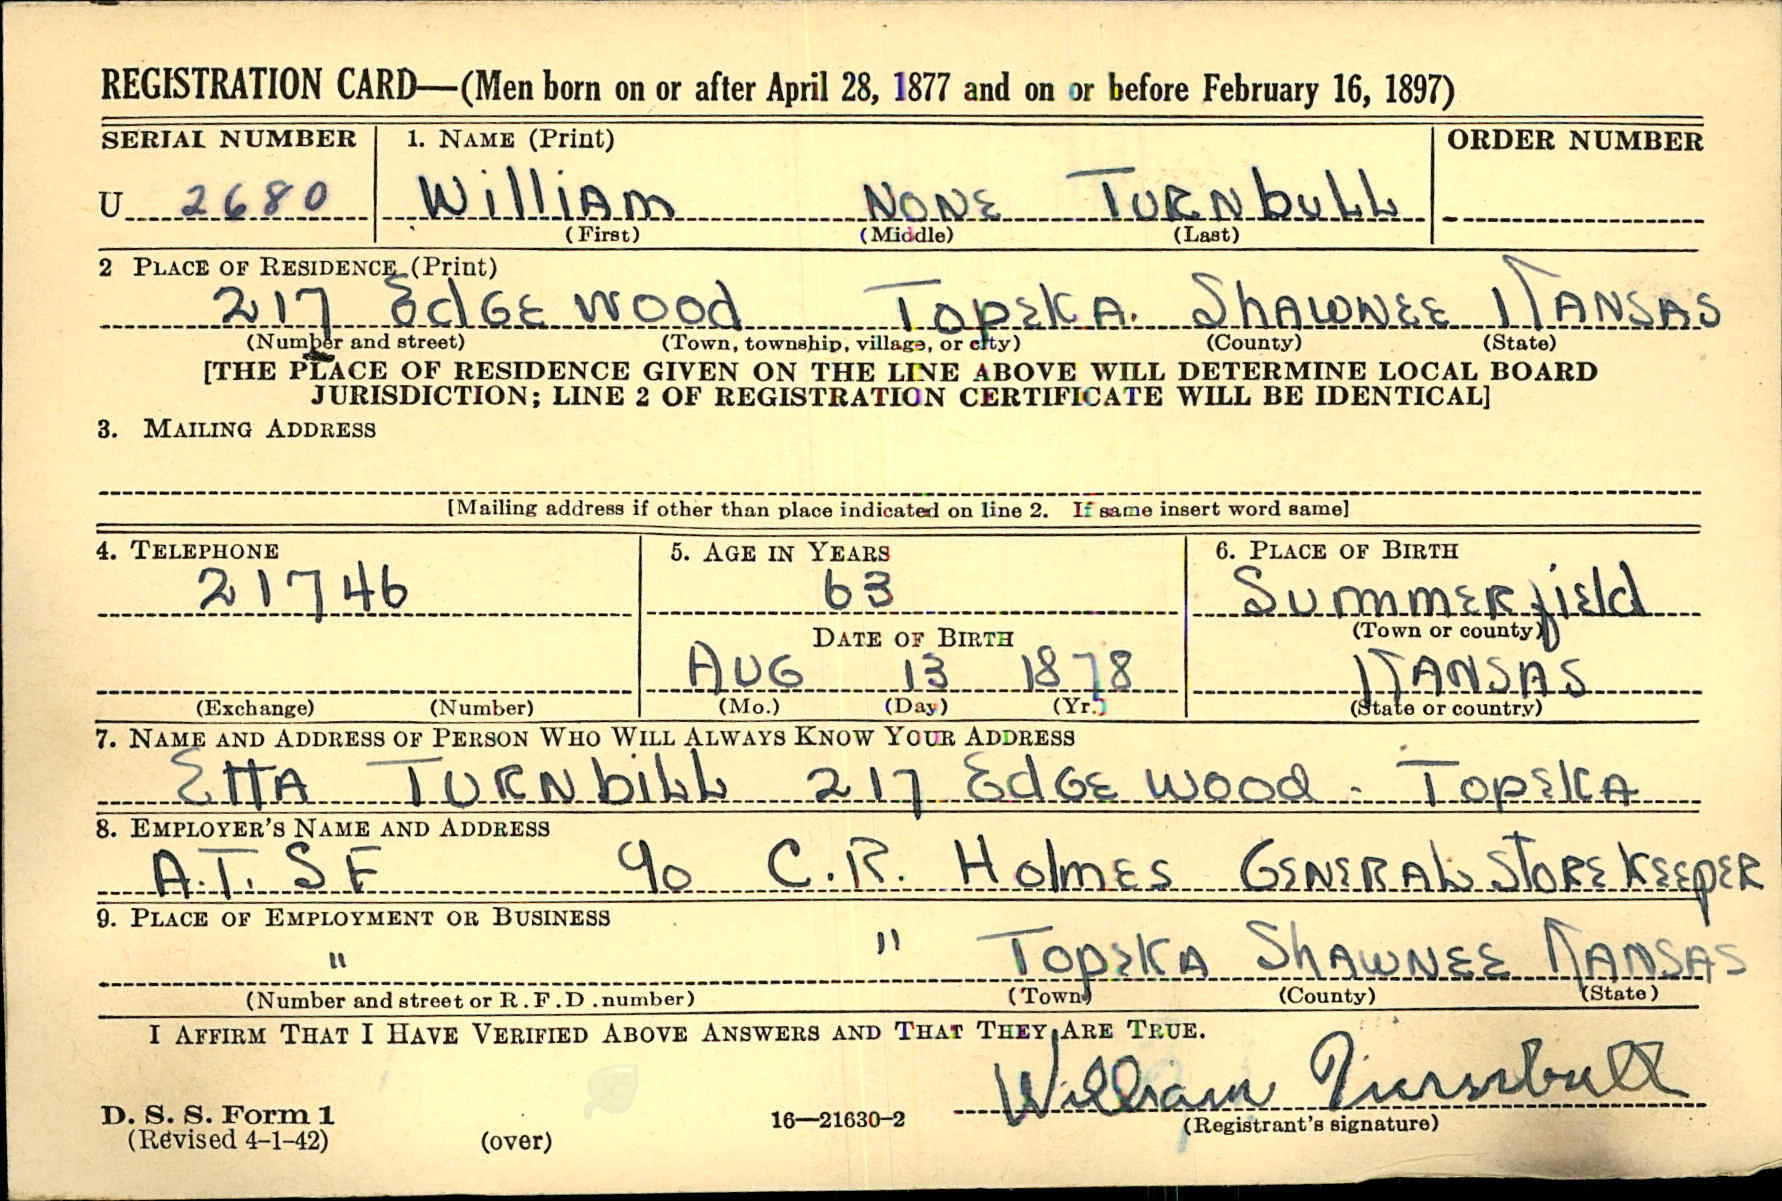 REGISTRATION CARD—(Men born on or after April 28, 1877 and on or before February 16, 1897)
SERIAL NUMBER 1. NAME (Print) ORDER NUMBER
U 2680 William NONE TURNbULL
(First) (Middle) (Last)
2 PLACE OF RESIDENCE (Print)
217 EdGE WOOd TOPEKA. ShAWNEE KANSAS
(Number and street) (Town, township, village, or city) (County) (State)
[THE PLACE OF RESIDENCE GIVEN ON THE LINE ABOVE WILL DETERMINE LOCAL BOARD
JURISDICTION; LINE 2 OF REGISTRATION CERTIFICATE WILL BE IDENTICAL]
3. MAILING ADDRESS
[Mailing address if other than place indicated on line 2. If same insert word same]
4. TELEPHONE 5. AGE IN YEARS 6. PLACE OF BIRTH
21746 63 SummERfiEld
DATE OF BIRTH (Town or county)
AUG 13 1878 KANSAS
(Exchange) (Number) (Mo.) (Day) (Yr.) (State or country)
7. NAME AND ADDRESS OF PERSON WHO WILL ALWAYS KNOW YOUR ADDRESS
EttA TURNbiLL 217 EdGE WOOd - TOPEKA
8. EMPLOYER'S NAME AND ADDRESS
A.T. SF c/o C.R. HolmES GENERAL STORE KEEPER
9. PLACE OF EMPLOYMENT OR BUSINESS
" " TOPEKA ShAWNEE KANSAS
(Number and street or R.F.D. number) (Town) (County) (State)
I AFFIRM THAT I HAVE VERIFIED ABOVE ANSWERS AND THAT THEY ARE TRUE.
William Turnbull
D. S. S. Form 1 16—21630-2 (Registrant's signature)
(Revised 4-1-42) (over)